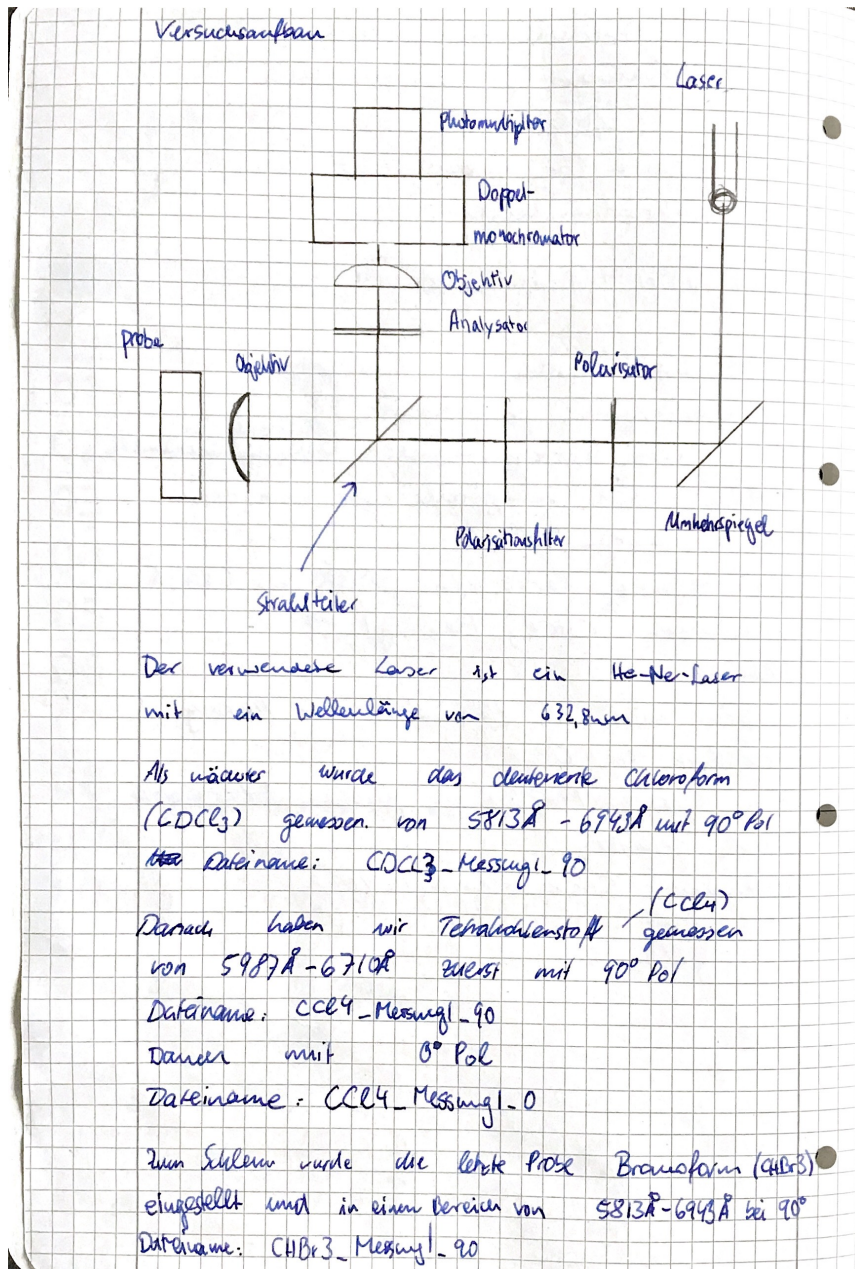 Versuchsaufbau
Laser
Photomultiplier
Doppel-
monochromator
Objektiv
Analysator
probe
Objektiv
Polarisator
Polarisationsfilter
Umkehrspiegel
Strahlteiler
Der verwendete Laser ist ein He-Ne-Laser
mit ein Wellenlänge von 632,8nm
Als nächstes wurde das deuterierte Chloroform
(CDCl3) gemessen. von 5813Å - 6943Å mit 90° Pol
Dateiname: CDCl3_Messung1_90
Danach haben wir Tetrakohlenstoff (CCl4) gemessen
von 5987Å-6710Å zuerst mit 90° Pol
Dateiname: CCl4_Messung1_90
Danach mit 0° Pol
Dateiname: CCl4_Messung1_0
Zum Schluss wurde die letzte Probe Bromoform (CHBr3)
eingestellt und in einen Bereich von 5813Å-6943Å bei 90°
Dateiname: CHBr3_Messung1_90